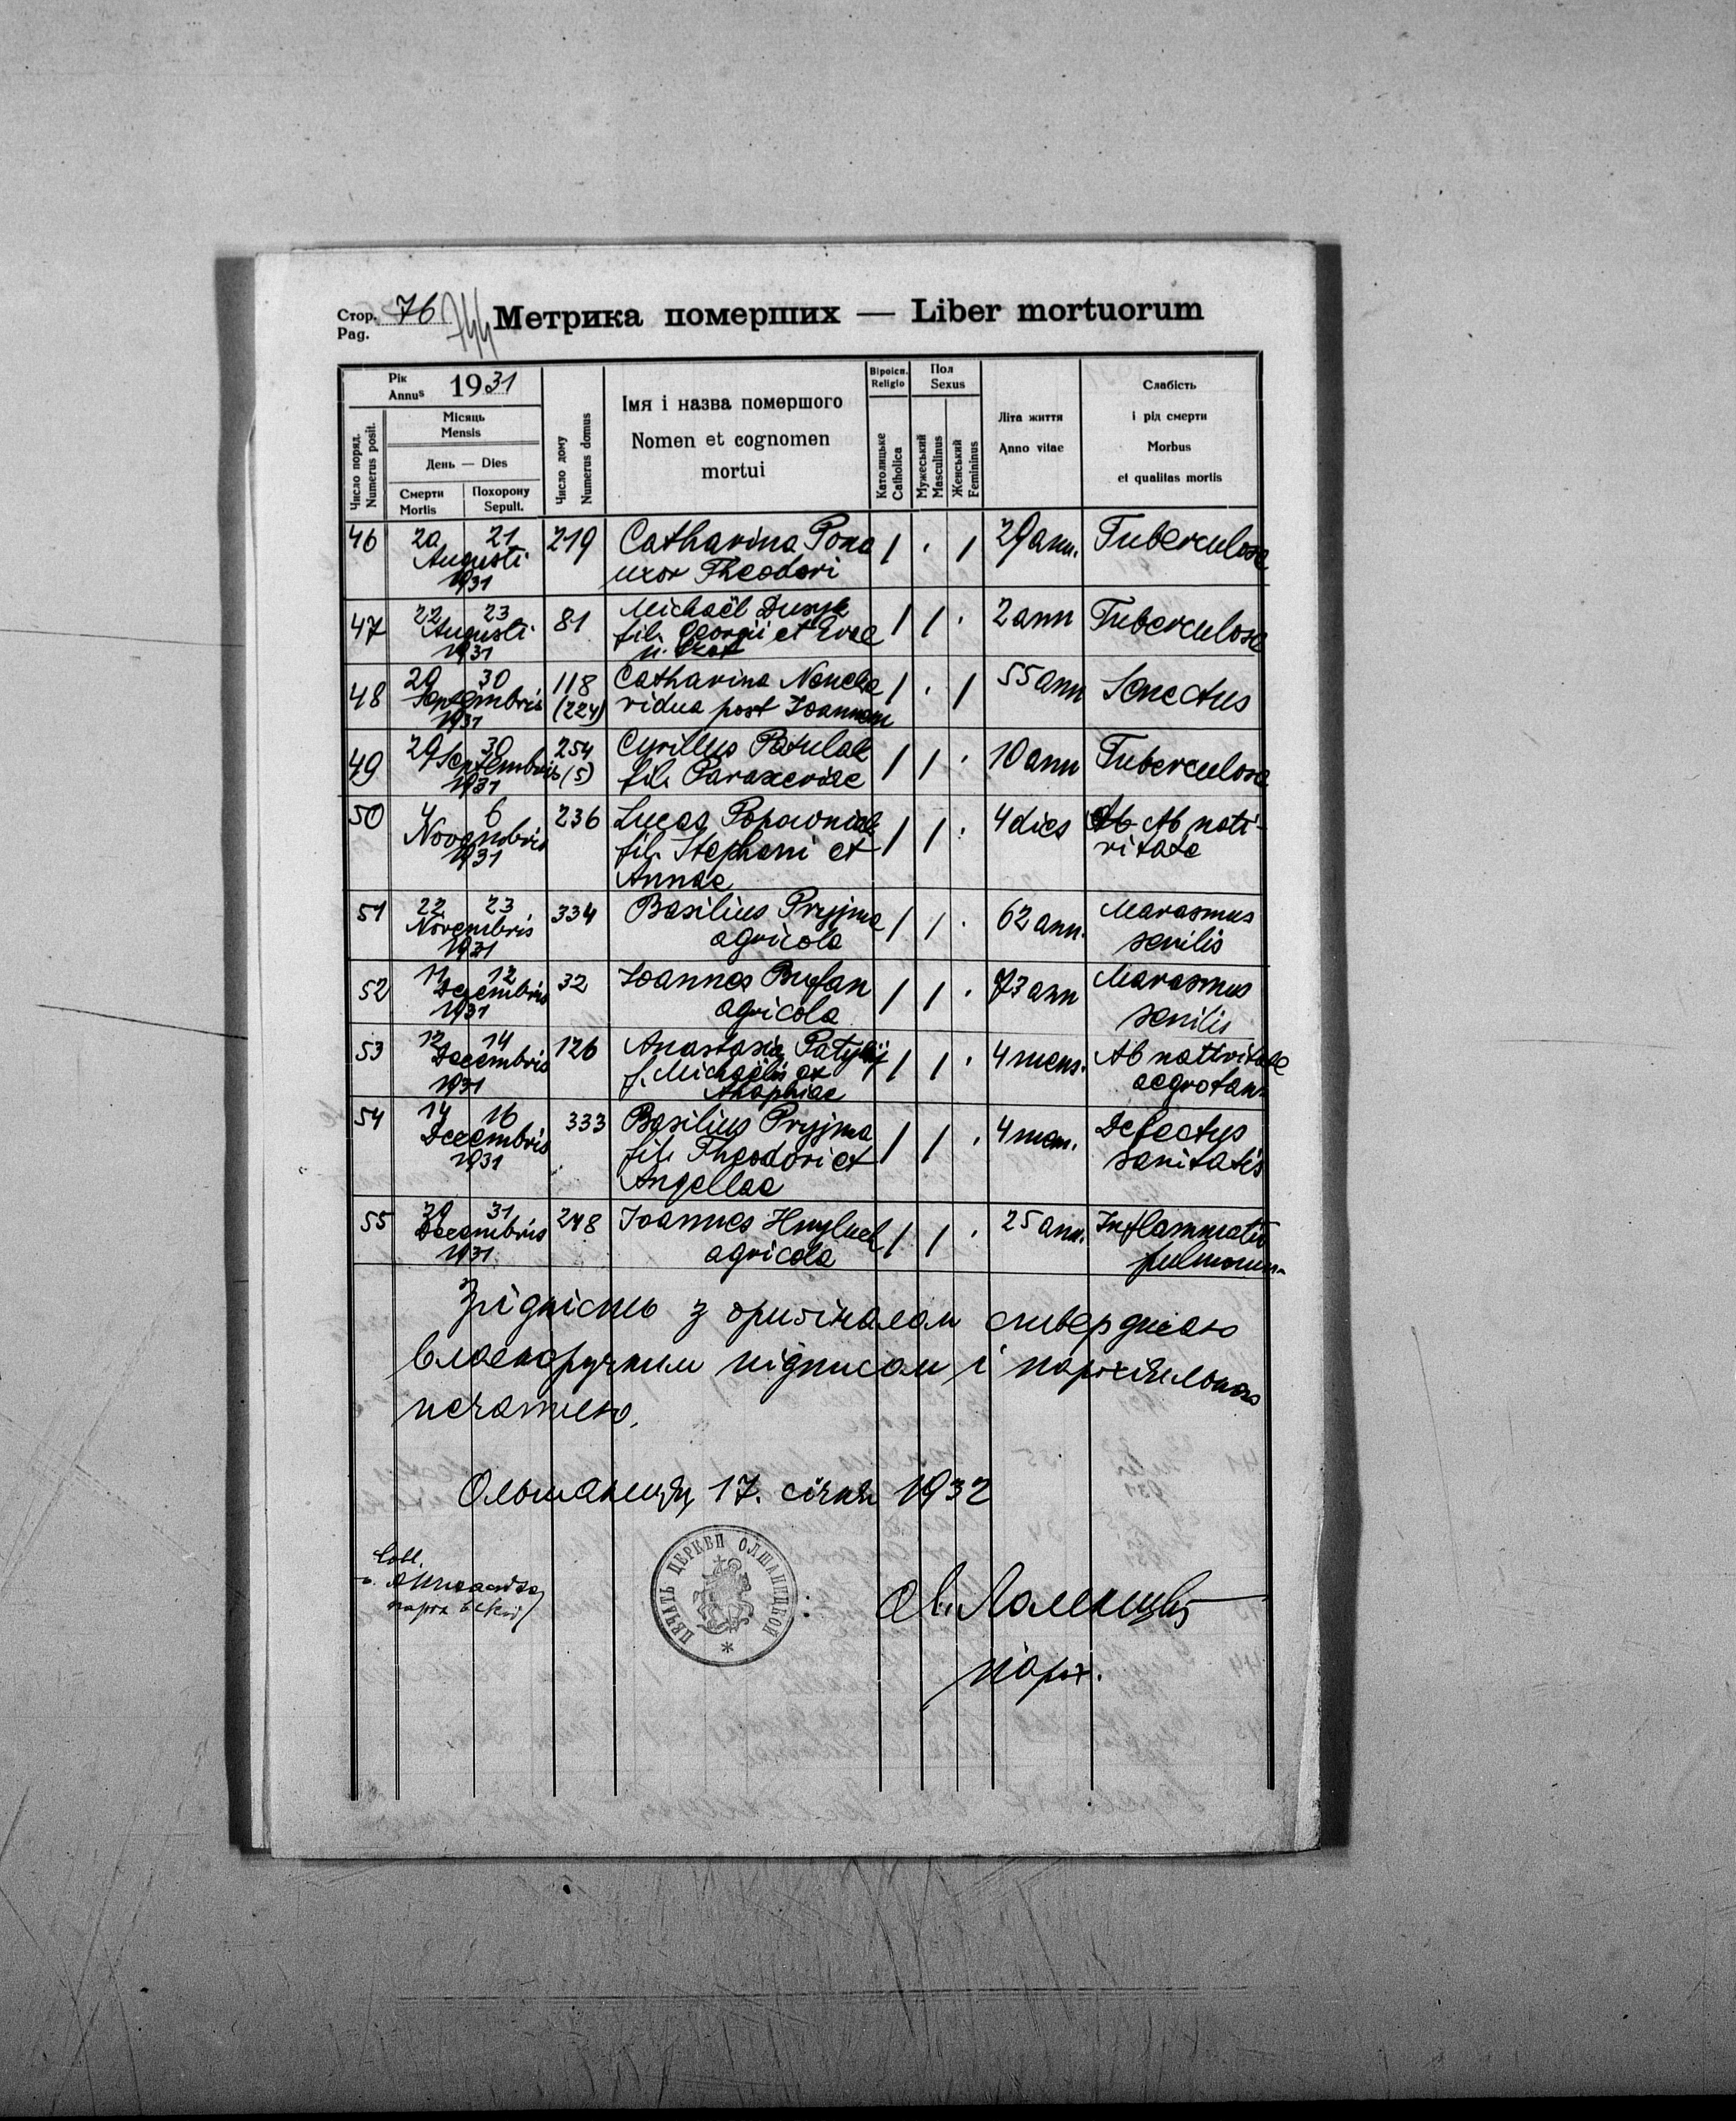 Стор. 76 744 Метрика померших — Liber mortuorum
Pag.
Рік
Annus 1931
Місяць
Mensis
День — Dies
Число поряд.
Numerus posit.
Смерти
Mortis
Похорону
Sepult.
Число дому
Numerus domus
Імя і назва помершого
Nomen et cognomen
mortui
Віроісп.
Religio
Католицьке
Catholica
Пол
Sexus
Мужеський
Masculinus
Женський
Femininus
Літа життя
Anno vitae
Слабість
і рід смерти
Morbus
et qualitas mortis
46 20 21 219 Catharina / . / 29 ann. Tuberculosa
Augusti uxor Theodori
1931
47 22 23 81 Michaël / / . 2 ann Tuberculosa
Augusti fil. Georgii et Evae
1931
48 29 30 118 Catharina / . / 55 ann Senectus
Septembris (224) vidua post Joannem
1931
49 29 30 254 Cyrillus / / . 10 ann Tuberculosa
Septembris (5) fil. Parasceviae
1931
50 4 6 236 Lucas / / . 4 dies Ab nati-
Novembris fil. Stephani et vitate
1931 Annae
51 22 23 334 Basilius Pryjma / / . 62 ann. Marasmus
Novembris agricola senilis
1931
52 11 12 32 Joannes / / . 73 ann Marasmus
Decembris agricola senilis
1931
53 12 14 126 Anastasia / / . 4 mens. Ab nativitate
Decembris f. Michaëlis et aegrotans
1931
54 14 16 333 Basilius Pryjma / / . 4 men. Defectus
Decembris fil. Theodori et sanitatis
1931 Angellae
55 29 31 248 Joannes / / . 25 ann. Inflammatio
Decembris agricola pulmonum
1931
Згідність з оригіналом стверджаю
власноручним підписом і парохіяльною
печатею.
Ольшаниця, 17. січня 1932
ПЕЧАТЬ ЦЕРКВИ ОЛШАНИЦКОЙ
парох.